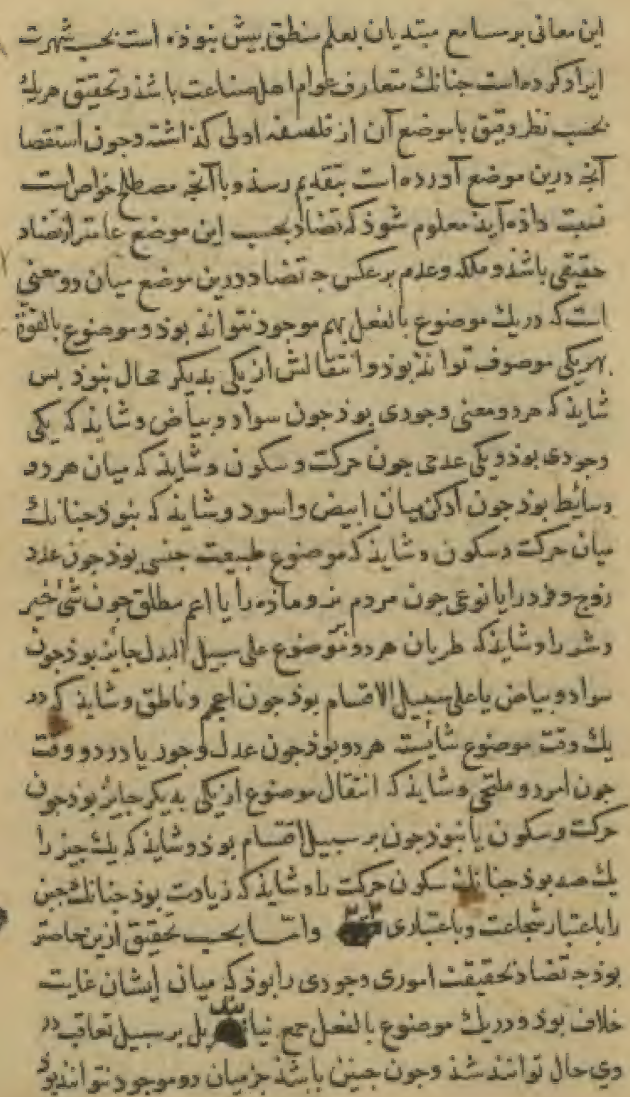 این معانی بر مسامع مبتدیان بعلم منطق بیش نبوذه است بحسب شهرت
ایراد کرده است جنانك متعارف عوام اهل صناعت باشذ و تحقیق هریك
بحسب نظر دقیق با موضع آن از فلسفه اولی کذاشته و جون استقصا
آنچه درین موضع آورده است بتقدیم رسذ و با آنچه مصطلح خواص است
نسبت داذه آیذ معلوم شوذ که تضاد بحسب این موضع عامتر از تضاد
حقیقی باشذ و ملکه و عدم بر عکس جه تضاد درین موضع میان دو معنی
است که در یك موضوع بالفعل بهم موجود نتوانذ بوذ و موضوع بالقوة
بهر یکی موصوف توانذ بوذ و انتقالش از یکی بدیکر محال نبوذ بس
شایذ که هر دو معنی وجودی بوذ جون سواد و بیاض و شایذ که یکی
وجودی بوذ و یکی عدمی جون حرکت و سکون و شایذ که میان هر دو
وسائط بوذ جون ادکن میان ابیض و اسود و شایذ که نبوذ جنانك
میان حرکت و سکون و شایذ که موضوع طبیعت جنسی بوذ جون عدد
زوج و فرد را یا نوعی جون مردم نر و ماذه را یا اعم مطلق جون شئ خیر
و شر را و شایذ که طریان هر دو بر موضوع علی سبیل البدل جایز بوذ جون
سواد و بیاض یا علی سبیل الاقسام بوذ جون اعجم و ناطق و شایذ که در
یك وقت موضوع شایسته هر دو بوذ جون عدل و جور یا در دو وقت
جون امرد و ملتحی و شایذ که انتقال موضوع از یکی بدیکر جایز بوذ جون
حرکت و سکون یا نبوذ جون بر سبیل اقتسام بوذ و شایذ که یك جیز را
یك ضد بوذ جنانك سکون حرکت را و شایذ که زیادت بوذ جنانك جبن
را باعتبار شجاعت و باعتباری و اما بحسب تحقیق ازین خاصتر
بوذ جه تضاد بحقیقت اموری وجودی را بوذ که میان ایشان غایت
خلاف بوذ و در یك موضوع بالفعل جمع نیایند بل بر سبیل تعاقب در
وی حال توانند شذ و جون جنین باشذ جز میان دو موجود نتوانذ بوذ